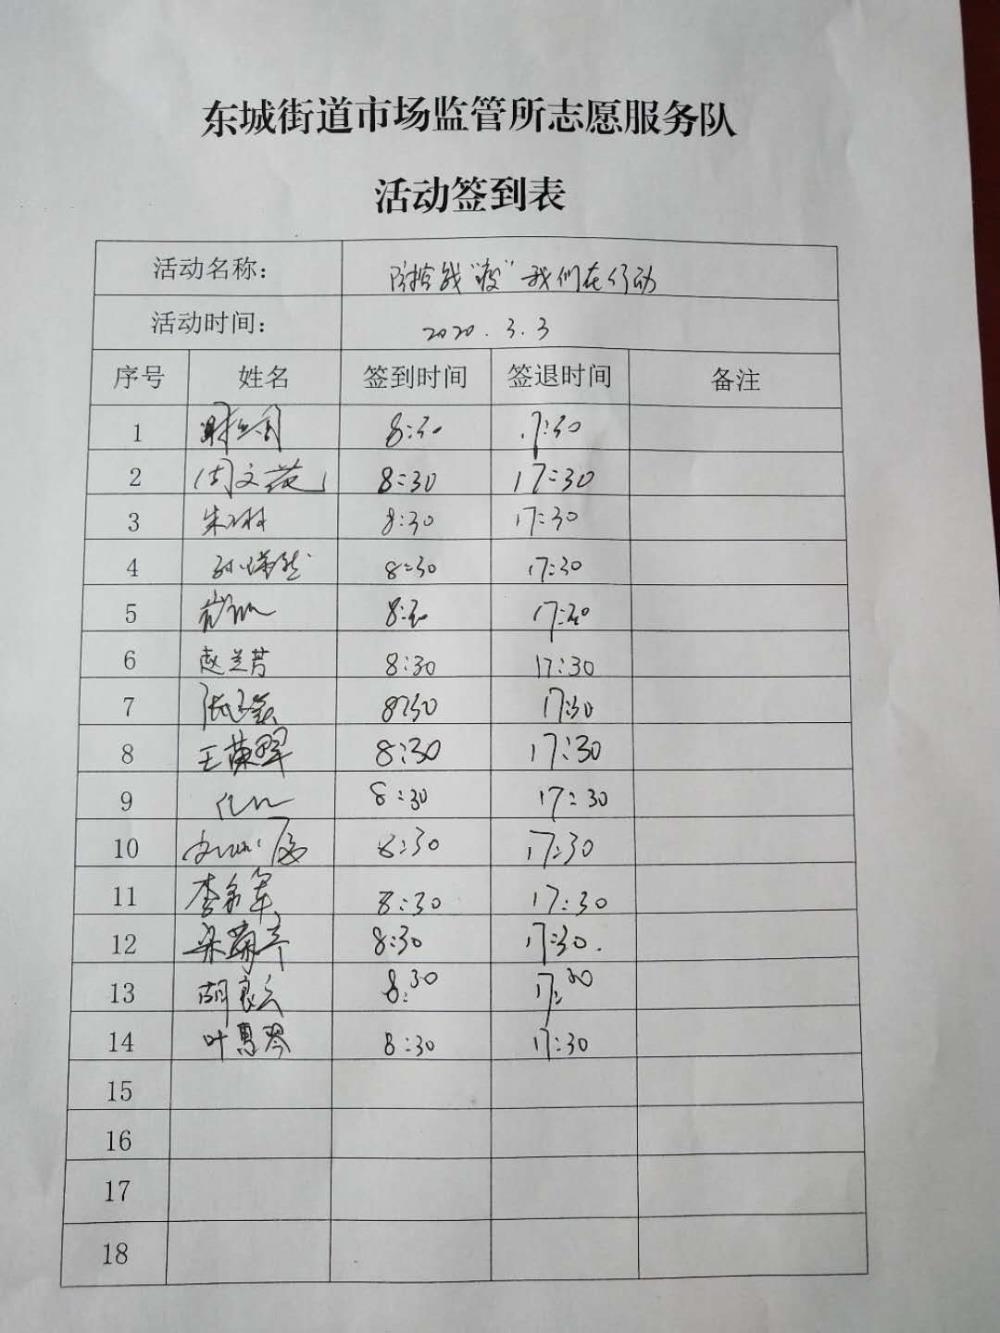 东城街道市场监管所志愿服务队
活动签到表
活动名称： 防控战“疫”我们在行动
活动时间： 2020.3.3
序号 姓名 签到时间 签退时间 备注
1 8:30 17:30
2 周文菀 8:30 17:30
3 朱 8:30 17:30
4 8:30 17:30
5 8:30 17:30
6 赵兰芳 8:30 17:30
7 张 8:30 17:30
8 王 8:30 17:30
9 8:30 17:30
10 8:30 17:30
11 李 军 8:30 17:30
12 梁 8:30 17:30.
13 胡良 8:30 17:30
14 叶惠琴 8:30 17:30
15
16
17
18